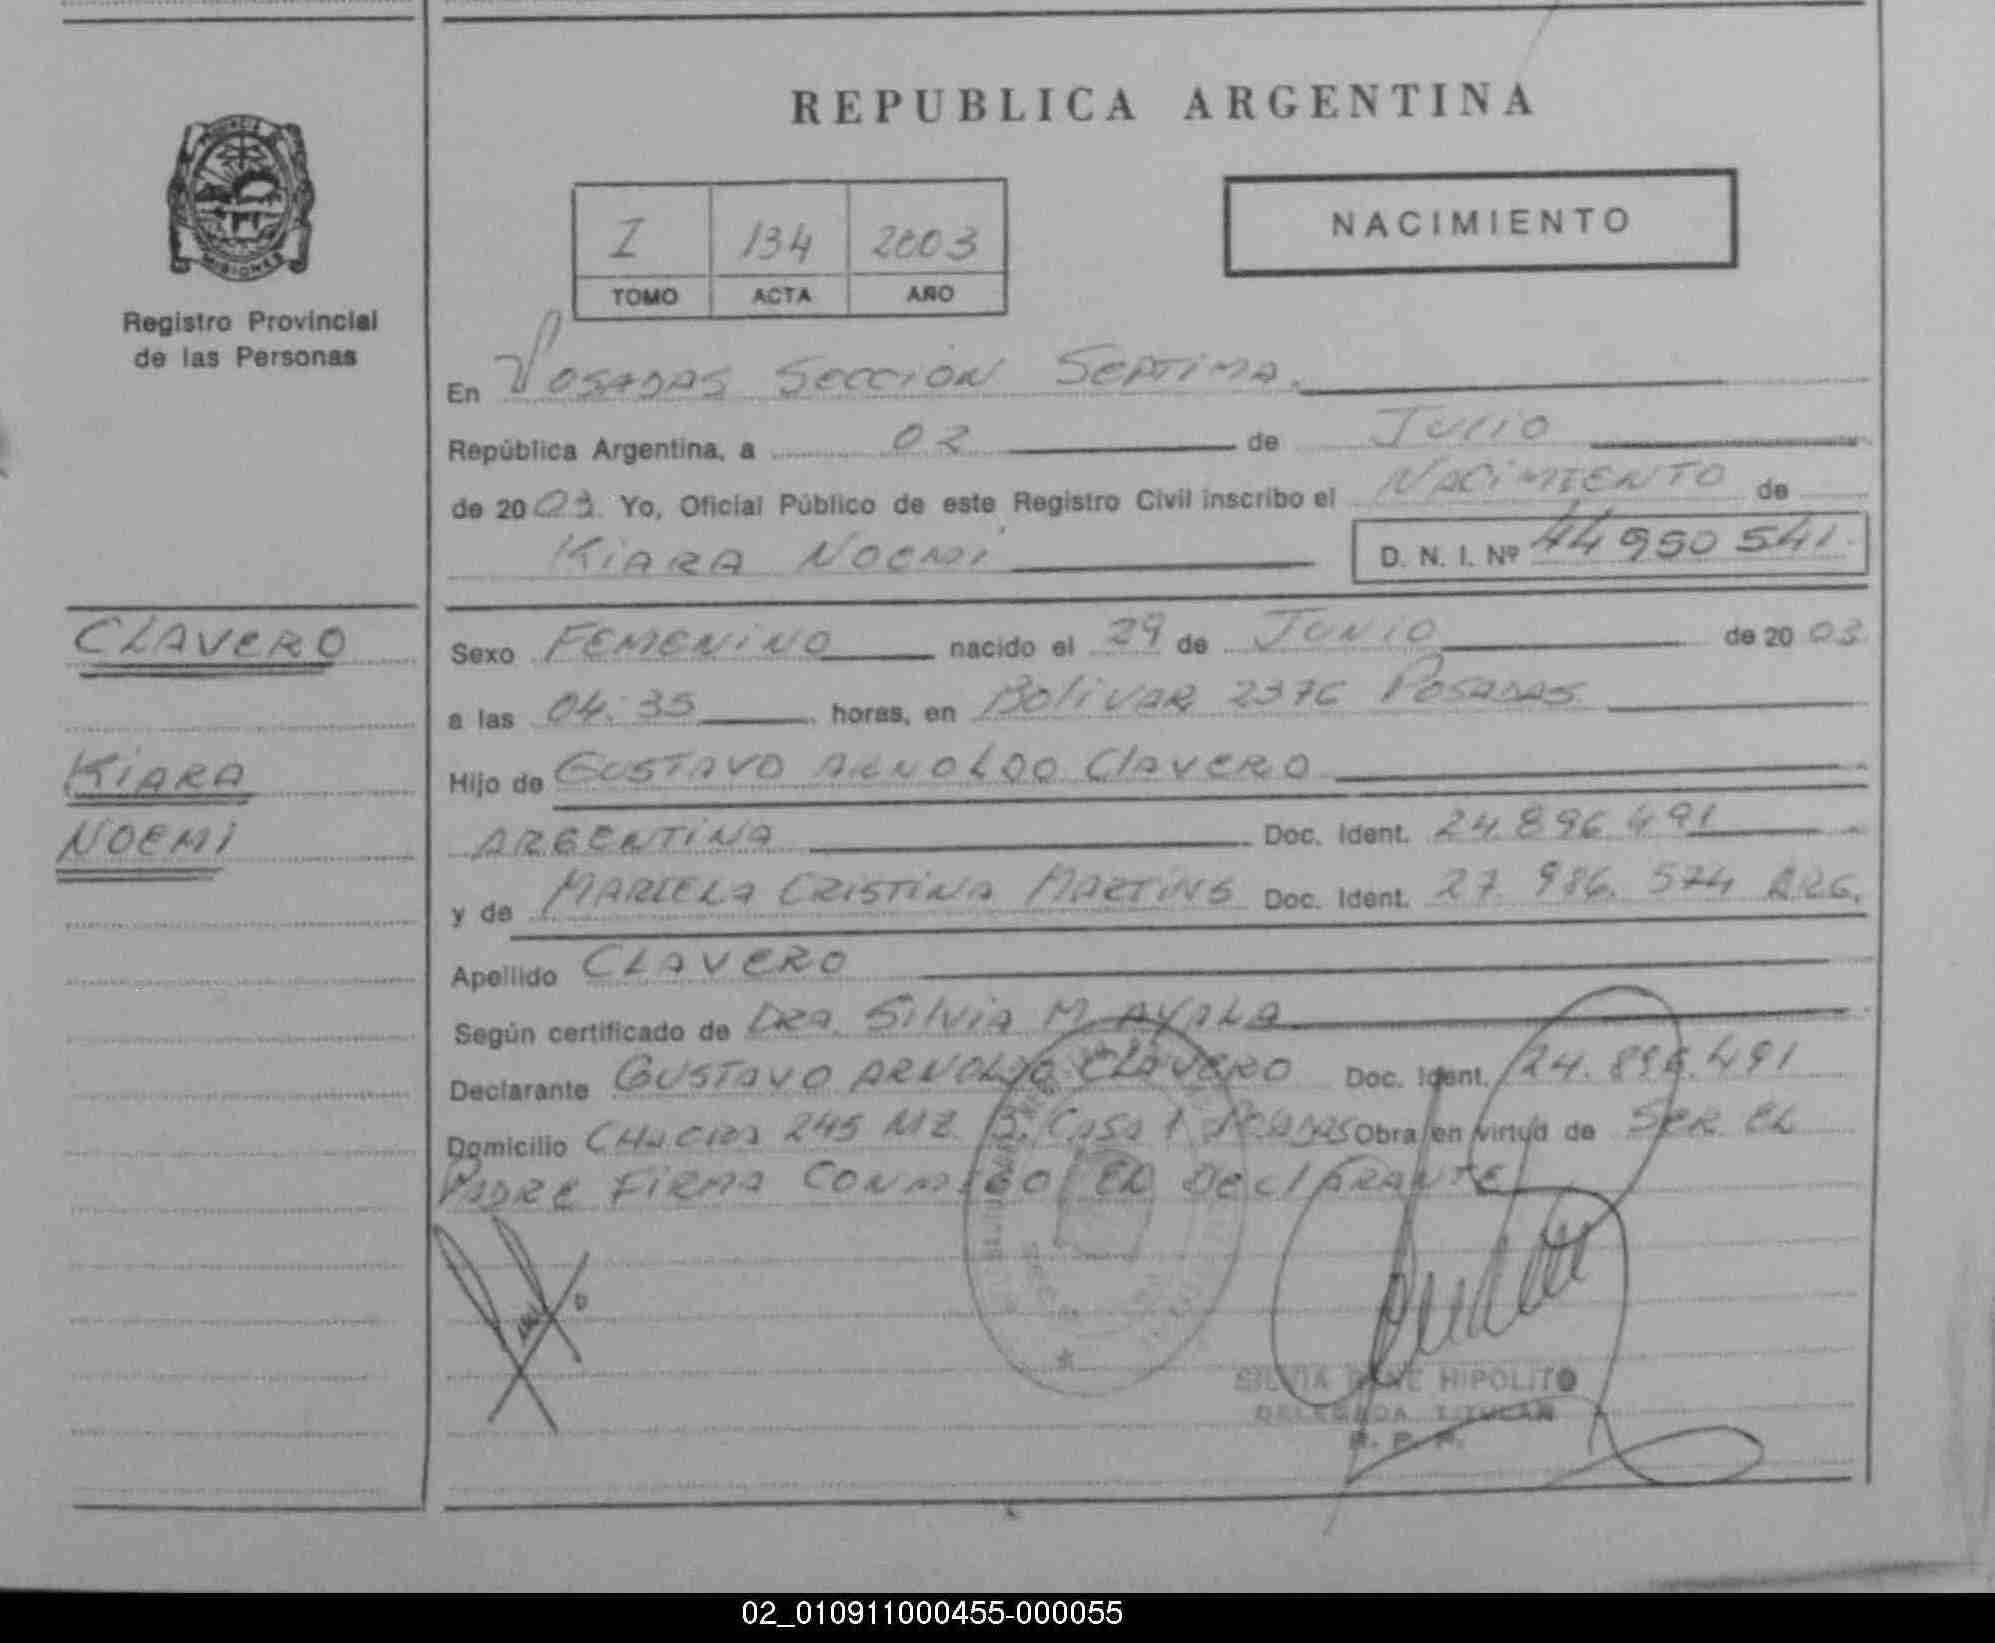 REPUBLICA ARGENTINA
PROVINCIA DE MISIONES
Registro Provincial
de las Personas
I 134 2003
TOMO ACTA AÑO
NACIMIENTO
En POSADAS SECCION SEPTIMA.
República Argentina, a 02 de JULIO
de 2003. Yo, Oficial Público de este Registro Civil inscribo el NACIMIENTO de
KIARA NOEMI D. N. I. Nº 44 950 541.
CLAVERO
KIARA
NOEMI
Sexo FEMENINO nacido el 29 de JUNIO de 2003
a las 04:35 horas, en Bolivar 2376 POSADAS
Hijo de GUSTAVO ARNOLDO ClAVERO
ARGENTINA Doc. Ident. 24.896.491
y de MARIELA CRISTINA MARTINS Doc. Ident. 27.986.574 ARG.
Apellido CLAVERO
Según certificado de DRA. Silvia M AYALA
Declarante GUSTAVO ARNOLDO CLAVERO Doc. Ident. 24.896.491
Domicilio CHACRA 245 MZ B, CASA 1 POSADAS Obra en virtud de SER EL
PADRE FIRMA CONMIGO EL DEClARANTE
SILVIA RENE HIPOLITO
DELEGADA TITULAR
R. P. P.
02_010911000455-000055